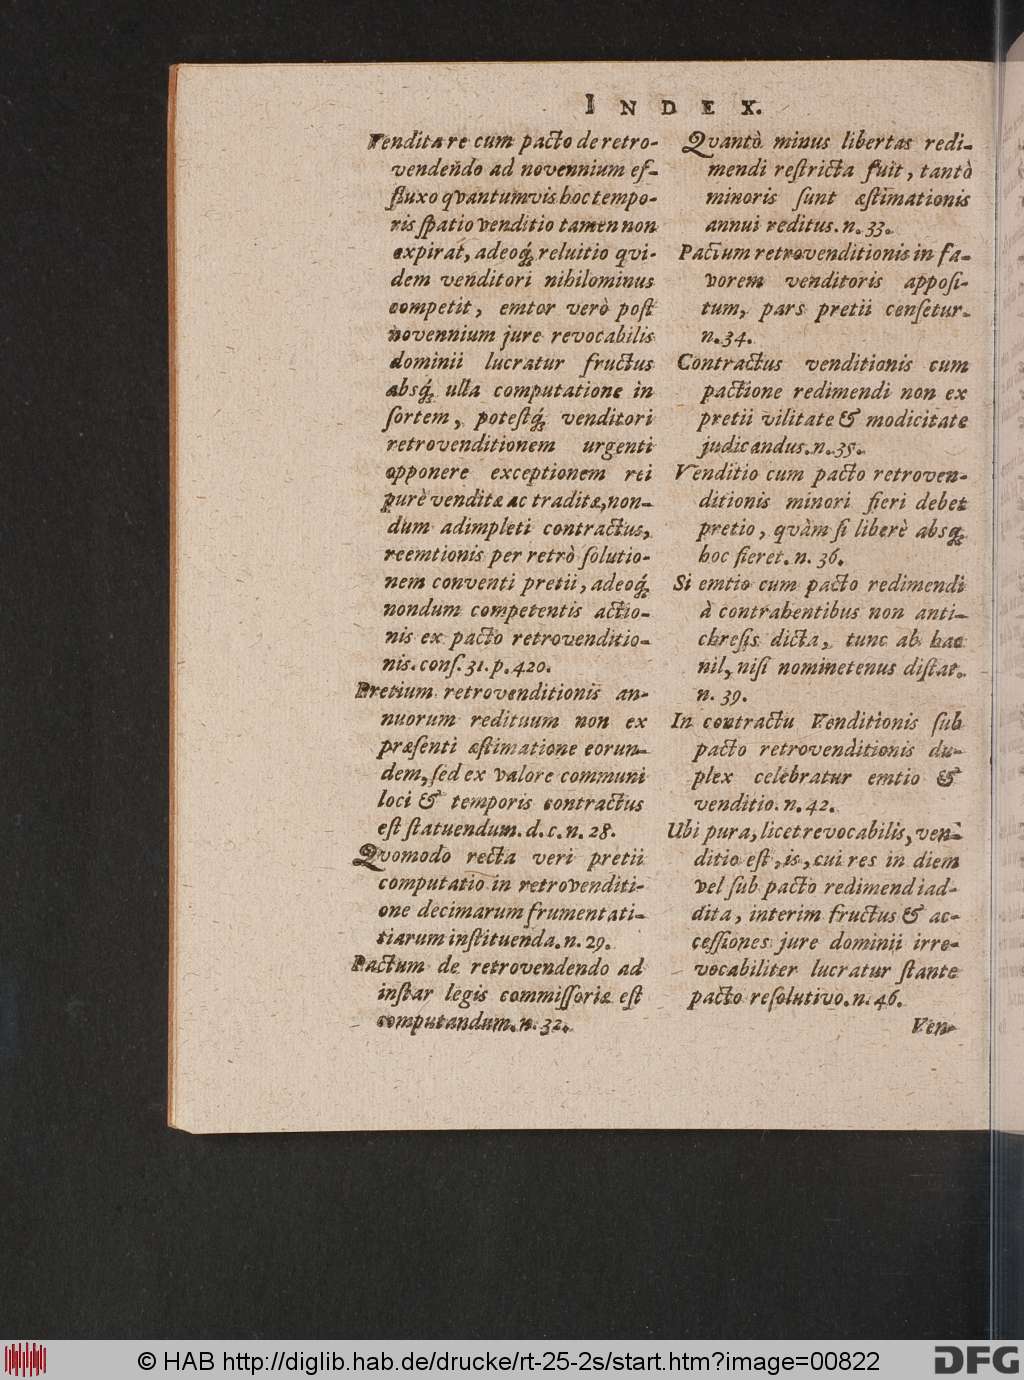 INDEX.
Vendita re cum pacto de retro-
vendendo ad novennium ef-
fluxo qvantumvis hoc tempo-
ris spatio venditio tamen non
expirat, adeoq́; reluitio qvi-
dem venditori nihilominus
competit, emtor verò post
novennium jure revocabilis
dominii lucratur fructus
absq́; ulla computatione in
sortem, potestq́; venditori
retrovenditionem urgenti
opponere exceptionem rei
purè venditæ ac traditæ, non-
dum adimpleti contractus,
reemtionis per retrò solutio-
nem conventi pretii, adeoq́;
nondum competentis actio-
nis ex pacto retrovenditio-
nis. cons. 31. p. 420.
Pretium retrovenditionis an-
nuorum redituum non ex
præsenti æstimatione eorun-
dem, sed ex valore communi
loci & temporis contractus
est statuendum. d. c. n. 28.
Qvomodo recta veri pretii
computatio in retrovenditi-
one decimarum frumentati-
tiarum instituenda. n. 29.
Pactum de retrovendendo ad
instar legis commissoriæ est
computandum. n. 32.
Qvantò minus libertas redi-
mendi restricta fuit, tantò
minoris sunt æstimationis
annui reditus. n. 33.
Pactum retrovenditionis in fa-
vorem venditoris apposi-
tum, pars pretii censetur.
n. 34.
Contractus venditionis cum
pactione redimendi non ex
pretii vilitate & modicitate
judicandus. n. 35.
Venditio cum pacto retroven-
ditionis minori fieri debet
pretio, qvàm si liberè absq;
hoc fieret. n. 36.
Si emtio cum pacto redimendi
à contrahentibus non anti-
chresis dicta, tunc ab hac
nil, nisi nominetenus distat.
n. 39.
In contractu Venditionis sub
pacto retrovenditionis du-
plex celebratur emtio &
venditio. n. 42.
Ubi pura, licet revocabilis, ven-
ditio est, is, cui res in diem
vel sub pacto redimendi ad-
dita, interim fructus & ac-
cessiones jure dominii irre-
vocabiliter lucratur stante
pacto resolutivo. n. 46.
Ven-
© HAB http://diglib.hab.de/drucke/rt-25-2s/start.htm?image=00822
DFG